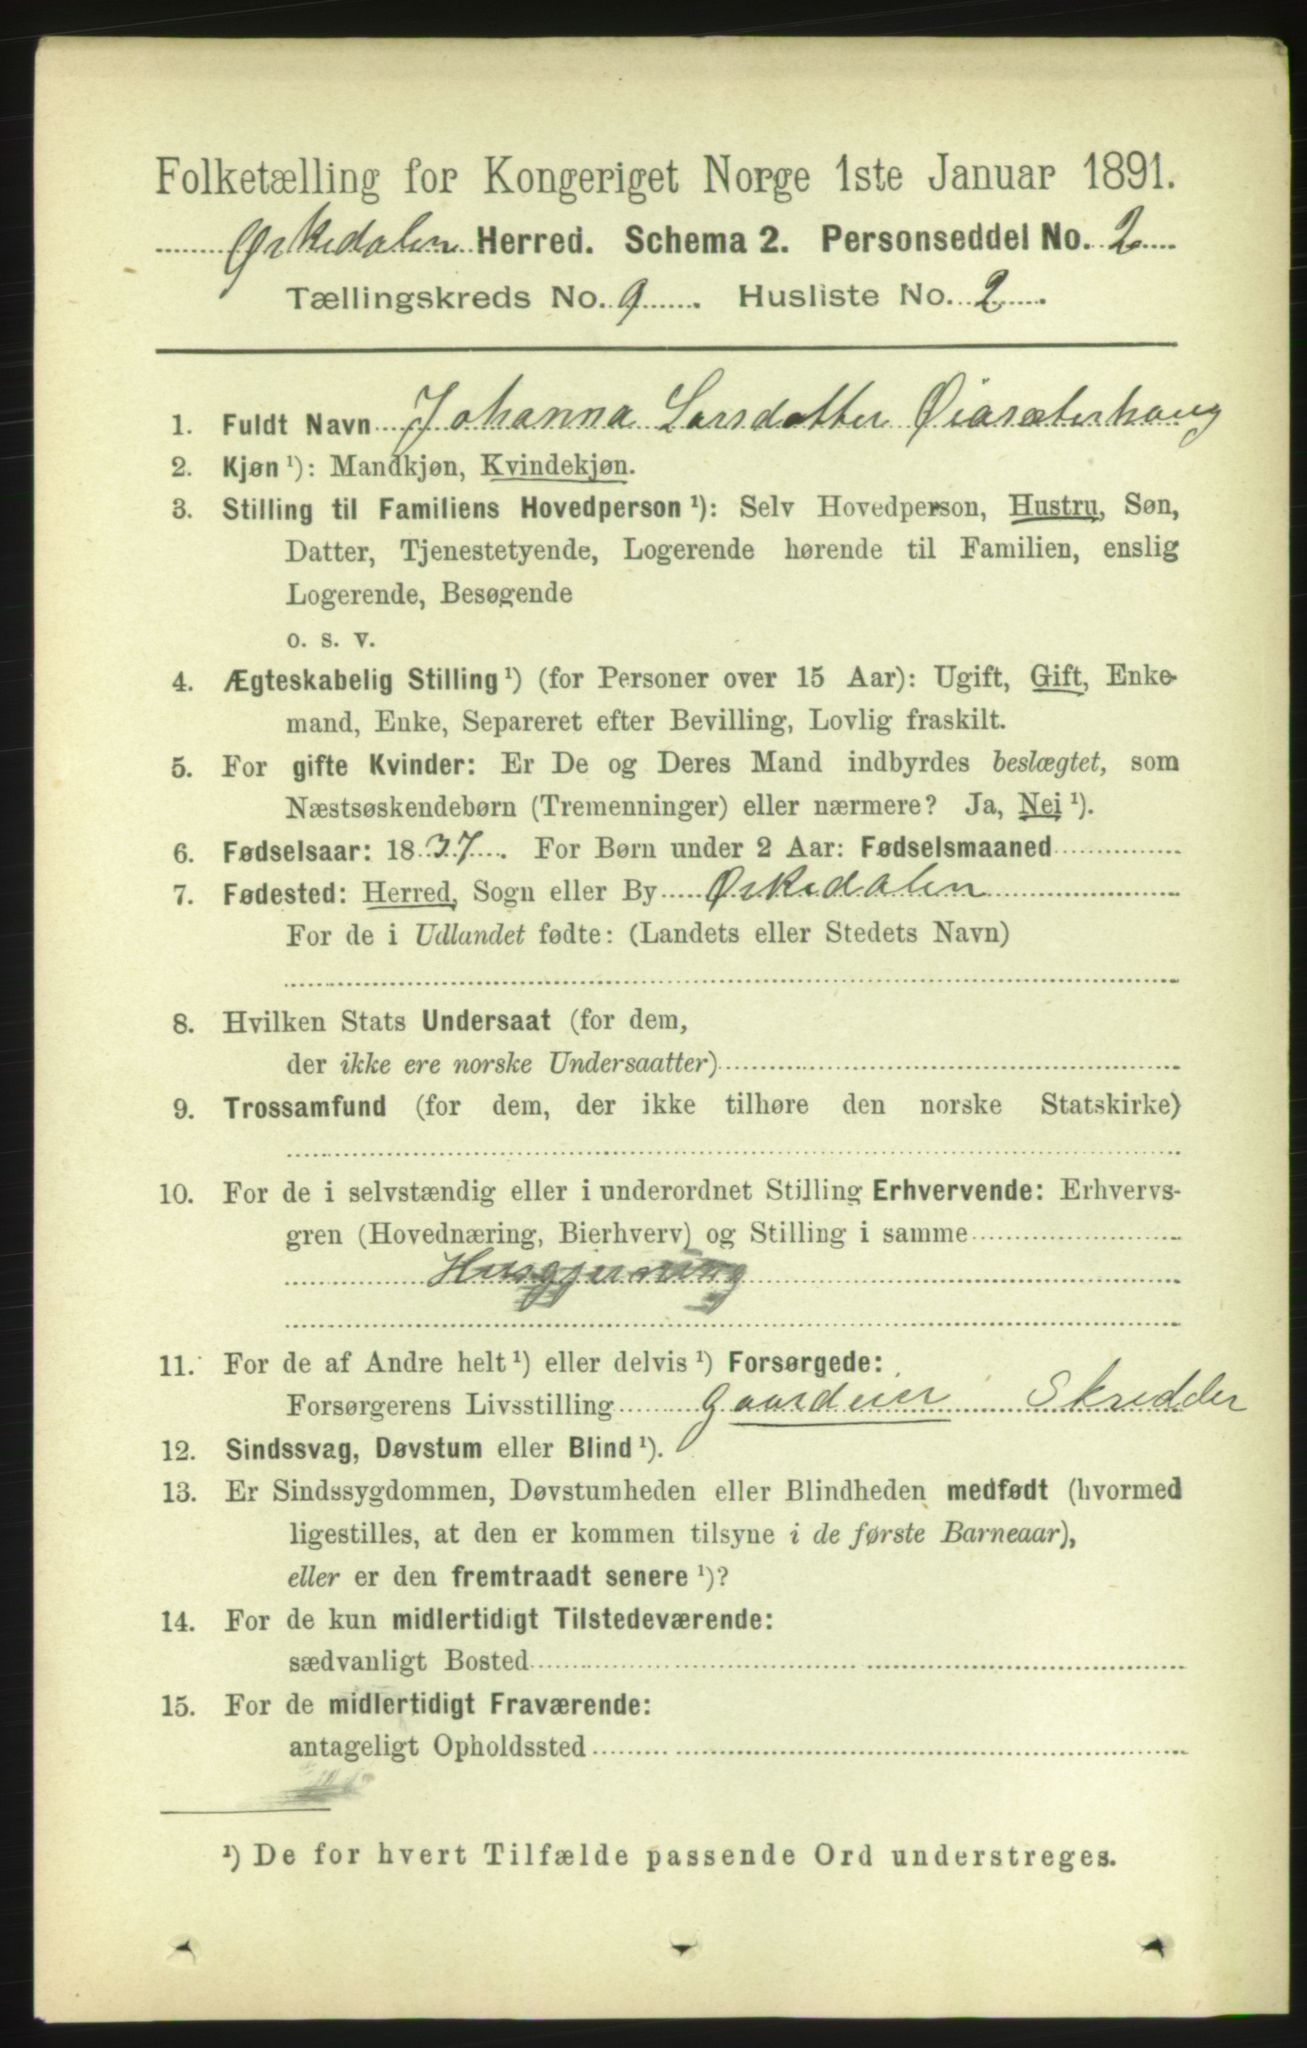 Folketælling for Kongeriget Norge 1ste Januar 1891.
Ørkedalen Herred. Schema 2. Personseddel No. 2
Tællingskreds No. 9. Husliste No. 2.
1. Fuldt Navn Johanna Larsdatter Øiasæterhaug
2. Kjøn ¹): Mandkjøn, Kvindekjøn.
3. Stilling til Familiens Hovedperson ¹): Selv Hovedperson, Hustru, Søn,
Datter, Tjenestetyende, Logerende hørende til Familien, enslig
Logerende, Besøgende
o. s. v.
4. Ægteskabelig Stilling ¹) (for Personer over 15 Aar): Ugift, Gift, Enke-
mand, Enke, Separeret efter Bevilling, Lovlig fraskilt.
5. For gifte Kvinder: Er De og Deres Mand indbyrdes beslægtet, som
Næstsøskendebørn (Tremenninger) eller nærmere? Ja, Nei ¹).
6. Fødselsaar: 1837. For Børn under 2 Aar: Fødselsmaaned
7. Fødested: Herred, Sogn eller By Ørkedalen
For de i Udlandet fødte: (Landets eller Stedets Navn)
8. Hvilken Stats Undersaat (for dem,
der ikke ere norske Undersaatter)
9. Trossamfund (for dem, der ikke tilhøre den norske Statskirke)
10. For de i selvstændig eller i underordnet Stilling Erhvervende: Erhvervs-
gren (Hovednæring, Bierhverv) og Stilling i samme
Husgjerning
11. For de af Andre helt ¹) eller delvis ¹) Forsørgede:
Forsørgerens Livsstilling gaardeier Skredder
12. Sindssvag, Døvstum eller Blind ¹).
13. Er Sindssygdommen, Døvstumheden eller Blindheden medfødt (hvormed
ligestilles, at den er kommen tilsyne i de første Barneaar),
eller er den fremtraadt senere ¹)?
14. For de kun midlertidigt Tilstedeværende:
sædvanligt Bosted
15. For de midlertidigt Fraværende:
antageligt Opholdssted
¹) De for hvert Tilfælde passende Ord understreges.